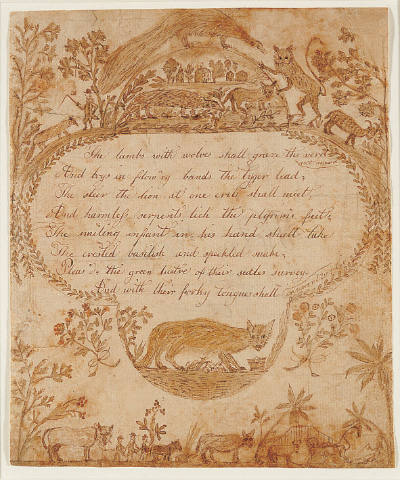 The lambs with wolves shall graze the verd
And boys in flow'ry bands the tiger lead;
The steer & lion at one crib shall meet,
And harmless serpents lick the pilgrims feet;
The smiling infant in his hand shall take
The crested basilisk and speckled snake;
Pleas'd the green lustre of their scales survey,
And with their forky tongue shall